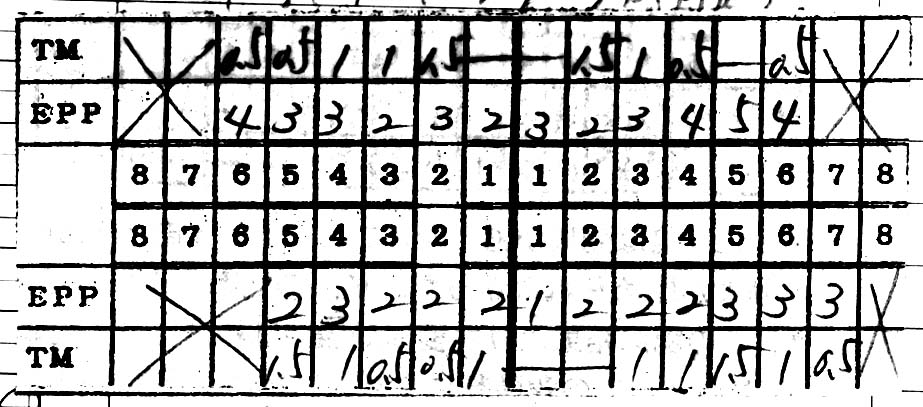 TM 0.5 0.5 1 1 1.5 — — 1.5 1 0.5 — 0.5
EPP 4 3 3 2 3 2 3 2 3 4 5 4
8 7 6 5 4 3 2 1 1 2 3 4 5 6 7 8
8 7 6 5 4 3 2 1 1 2 3 4 5 6 7 8
EPP 2 3 2 2 2 1 2 2 2 3 3 3
TM 1.5 1 0.5 0.5 1 — — 1 1 1.5 1 0.5